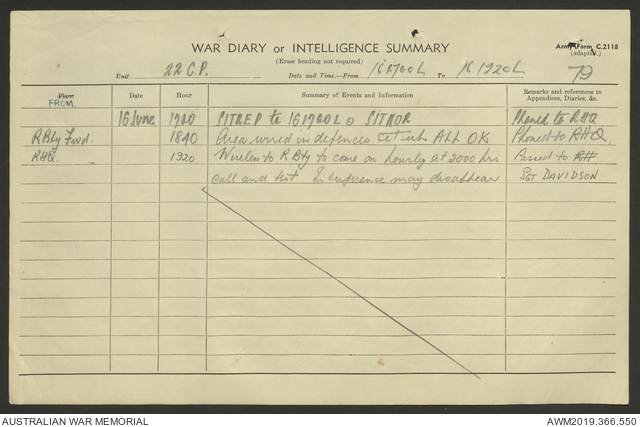 WAR DIARY or INTELLIGENCE SUMMARY
Army Form C.2118
(Erase heading not required)
(adapted.)
Unit 22 C.P. Date and Time.—From 161700L To 16 1920L 79
Place Date Hour Summary of Events and Information Remarks and references to Appendices, Diaries, &c.
FROM
16 June 1700 SITREP to 161700L SITNOR Phoned to RHQ
R Bty Fwd. 1840 Area wired in defences ALL OK Phoned to RHQ
RHQ. 1920 Wireless to R Bty to come on hourly at 2000 hrs Passed to RH
call and test. Interference may disappear SGT DAVIDSON
AUSTRALIAN WAR MEMORIAL
AWM2019.366.550